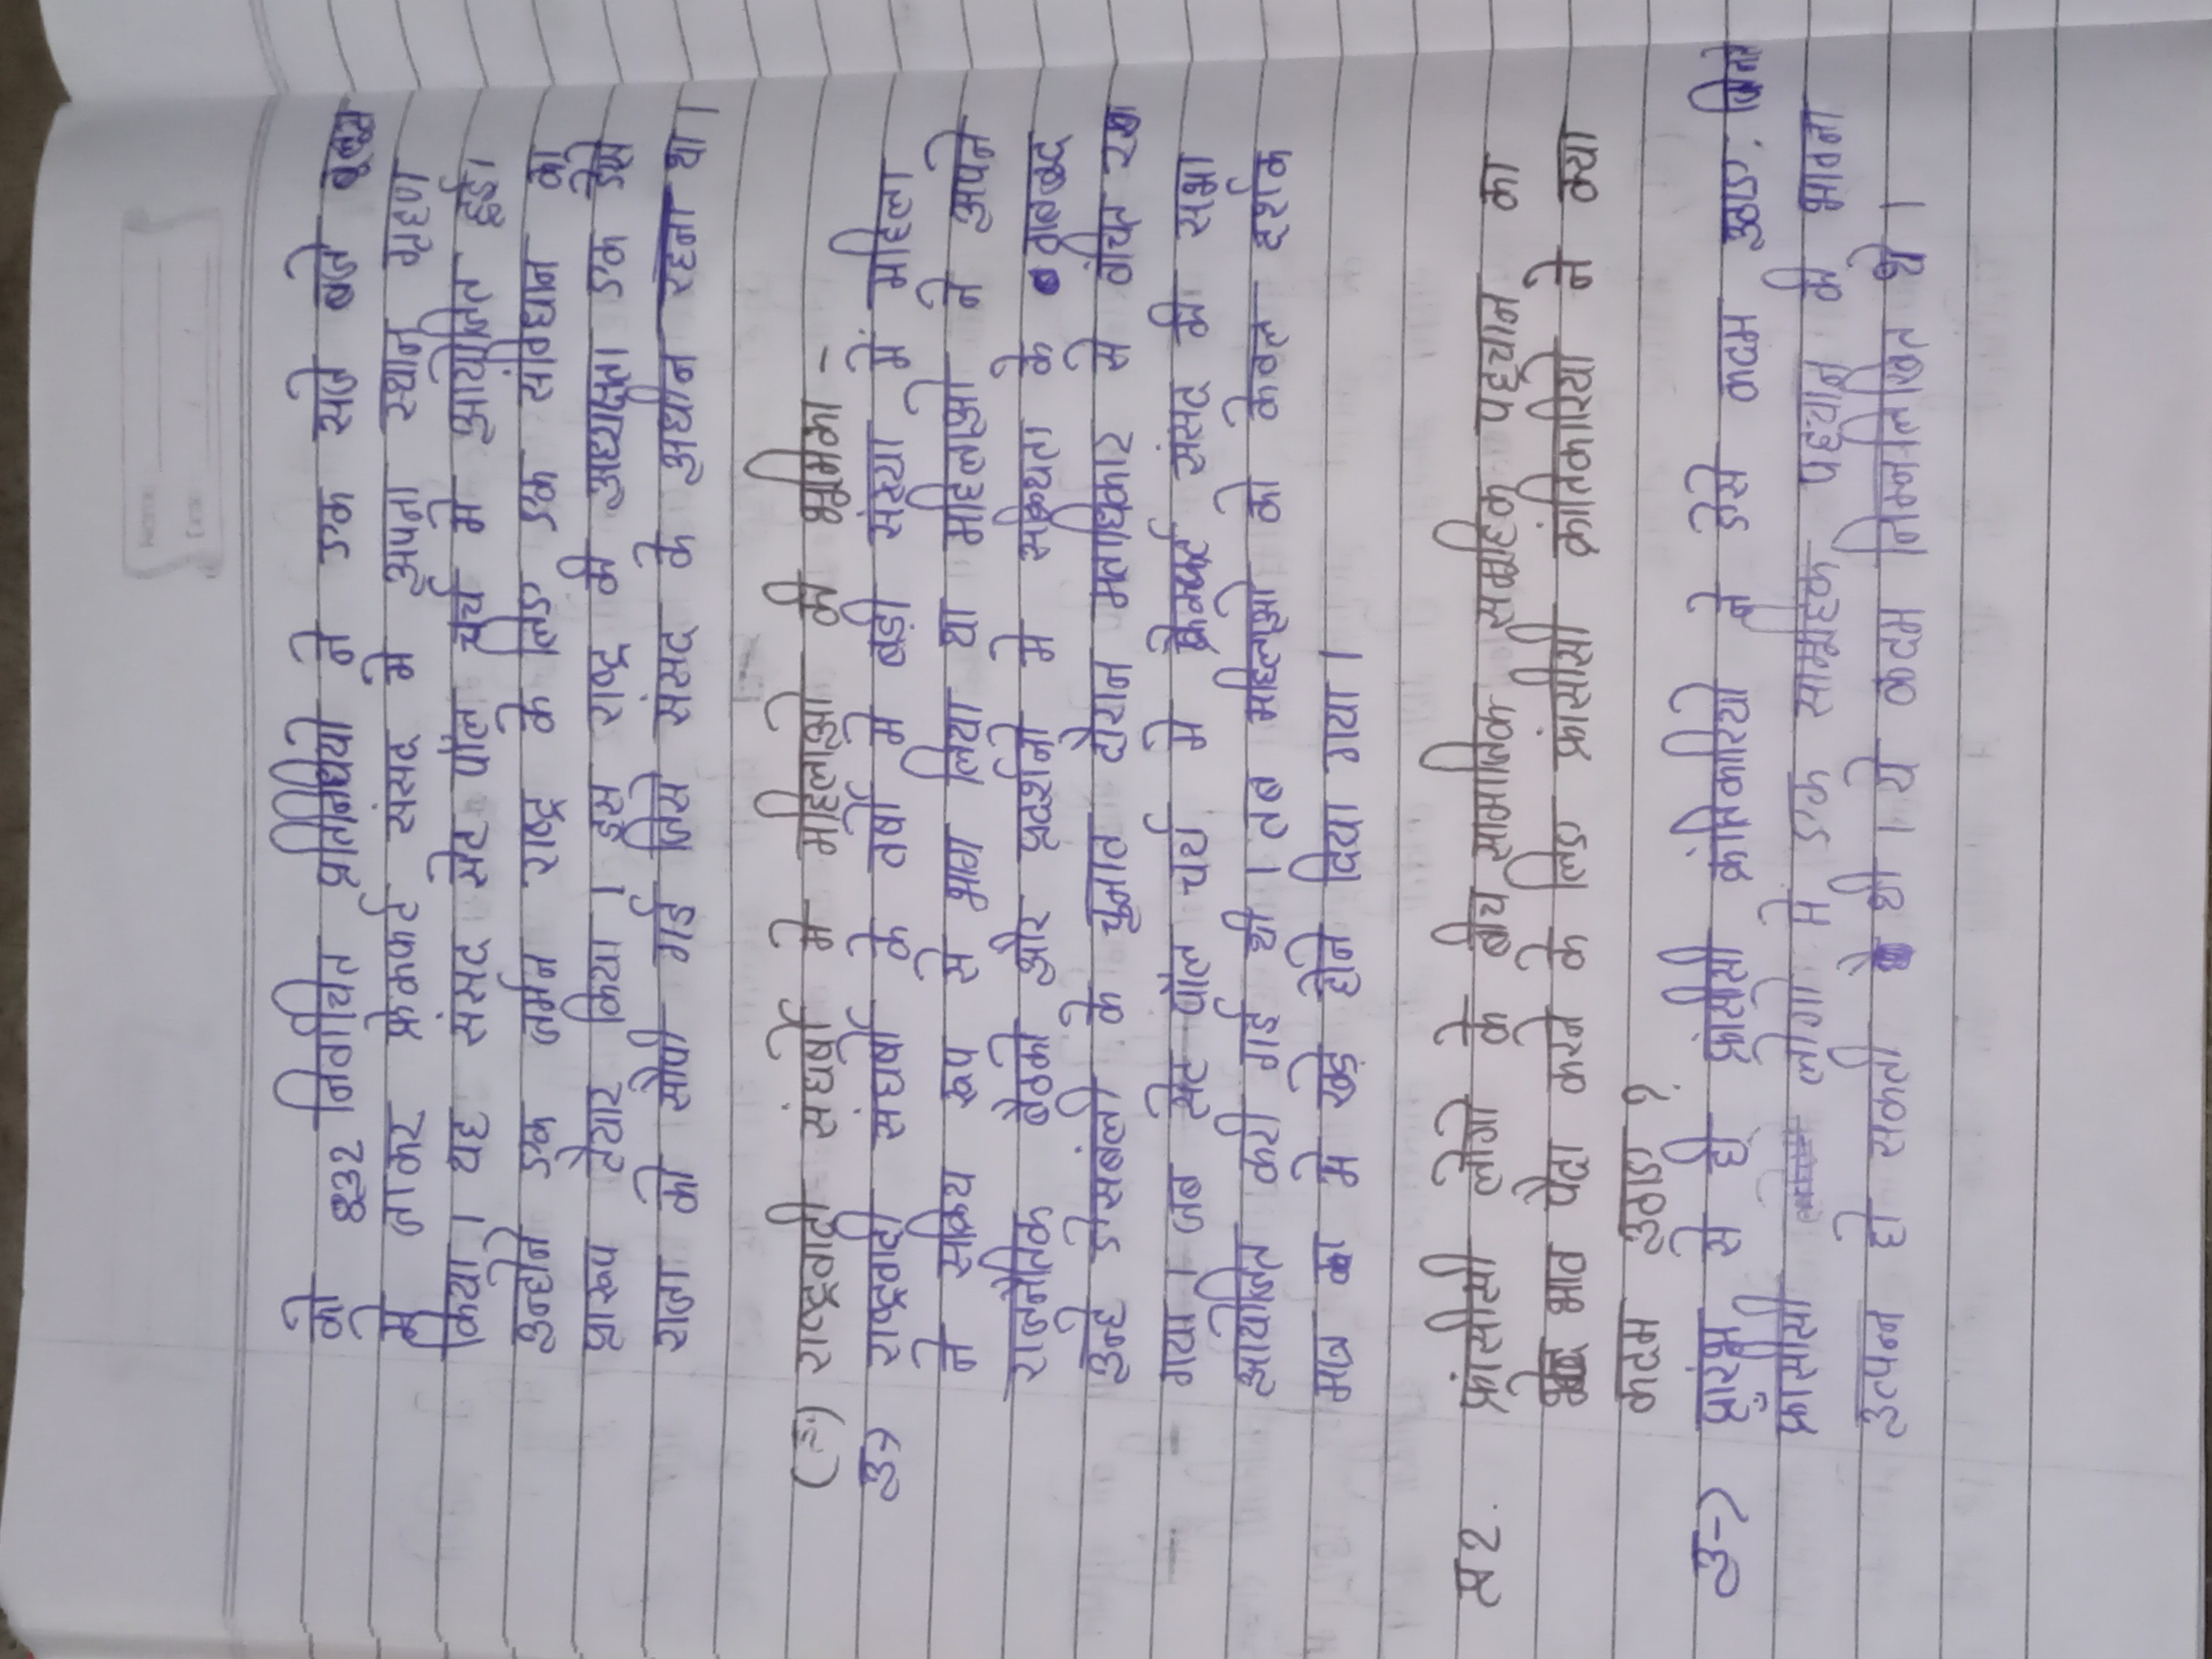 को 832 निर्वाचित प्रतिनिधियो ने एक सजे बजे
मे जाकर फ्रेकफर्ट संसद मे अपना स्थान गृहण
किया। यह संसद सेट पॉल चर्च मे आयोजित हुई।
उन्होने एक जर्मन राष्ट्र के लिए एक संविधान का
प्रारूप तैयार किया। इस राष्ट्र की अध्यक्षता एक ऐसे
राजा को सौपी गई जिसे संसद के अधीन रहना था।
राष्ट्रवादी संघर्षो मे महिलाओ की भूमिका -
उ→ राष्ट्रवादी संघर्षो के वर्षो मे बड़ी संख्या में महिला
ने सक्रिय रूप से भाग लिया था महिलाओ ने अपने
राजनैतिक बैठको और प्रदर्शनो मे सक्रियता के
उन्हे ऐसबंली के चुनाव दौरान मताधिकार से वंचित रखा
गया। जब सेट पॉल चर्च मे फ्रेकफर्ट संसद की सभा
आयोजित करी गई थी। तब महिलाओ को केवल दर्शक
मात्र का मे खड़े होने दिया गया।
प्र 2. फ्रांसीसी लोगो के बीच सामाजिक समूहिक पहचान का
भाव पैदा करने के लिए फ्रांसीसी क्रांतिकारियो ने क्या
कदम उठाए ?
उ-> प्रारंभ से ही फ्रांसीसी क्रांतिकारियो ने ऐसे कदम उठाए, जिनसे
फ्राँसीसी लोगो मे एक सामूहिक पहचान की भावना
उत्पन्न हो सकती थी। ये कदम निम्नलिखित थे।